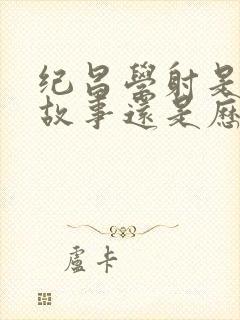 纪昌學射是
故事還是歷
盧卡